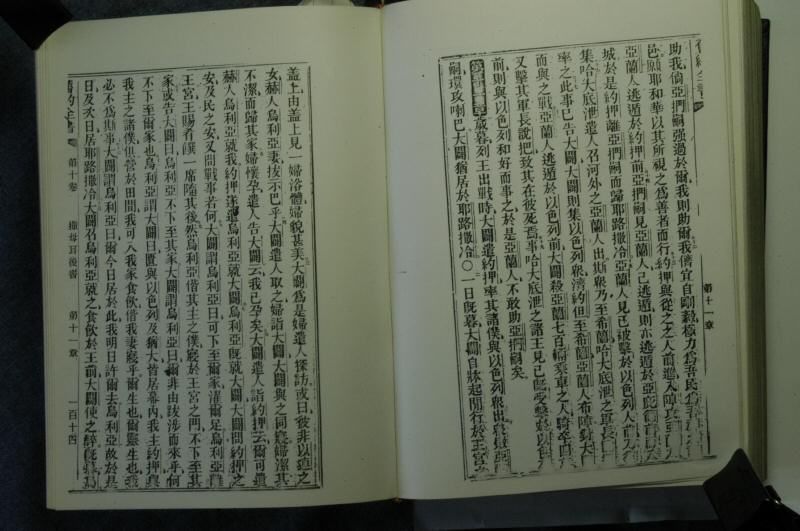 助我倘亞捫嗣强過於爾我則助爾我儕宜自剛毅極力為吾民
邑願耶和華以其所視之為善者而行約押與從之之人前進入陣攻亞
亞蘭人逃遁於約押前亞捫嗣見亞蘭人已逃遁則亦逃遁於亞庇篩前
城於是約押離亞捫嗣而歸耶路撒冷亞蘭人見已被擊於以色列人前
集哈大底泄遣人召河外之亞蘭人出斯衆乃至希蘭哈大底泄之軍長
率之此事已告大闢大闢則集以色列衆濟約但至希蘭亞蘭人布陣對大
而與之戰亞蘭人逃遁於以色列前大闢殺亞蘭七百輛乘車之人騎卒四
又擊其軍長說把致其在彼死焉事哈大底泄之諸王見己既受擊於以色
前則與以色列和好而事之於是亞蘭人不敢助亞捫嗣矣
第十一章歲暮列王出戰時大闢遣約押率其諸僕與以色列衆出毀亞捫
嗣環攻喇巴大闢猶居於耶路撒冷○一日既暮大闢自牀起閒行於王宮之
第十一章
蓋上由蓋上見一婦浴體婦貌甚美大闢為是婦遣人探訪或曰彼非以連之
女赫人烏利亞妻抜示巴乎大闢遣人取之婦詣大闢大闢與之同寢婦潔其
不潔而歸其家婦懷孕遣人告大闢云我已孕矣大闢遣人詣約押云爾可遣
赫人烏利亞就我約押遂遣烏利亞就大闢烏利亞既就大闢大闢問約押之
安及民之安又問戰事若何大闢謂烏利亞曰可下至爾家濯爾足烏利亞出
王宮王賜肴饌一席隨其後然烏利亞偕其主之僕寢於王宮之門不下至其
家或告大闢曰烏利亞不下至其家大闢謂烏利亞曰爾非由跋涉而來乎何
不下至爾家也烏利亞謂大闢曰匱與以色列及猶大皆居幕內我主約押與
我主之諸僕俱營於田間我可入我家食飲偕我妻寢乎爾生也爾靈生也我
必不為斯事大闢謂烏利亞曰爾今日居於此我明日許爾去烏利亞故於是
日及次日居耶路撒冷大闢召烏利亞就之食飲於王前大闢使之醉既暮烏
舊約全書
第十卷
撒母耳後書
第十一章
一百十四